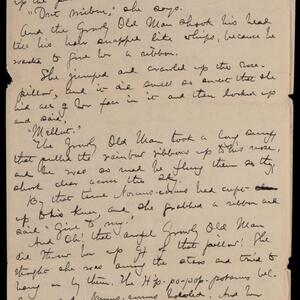 up the
"Dat ribbon," she says.
And the Growly Old Man shook his head
till his hair snapped like whips, because he
wanted to give her a ribbon.
She jumped and crawled up the rose-
pillow, and it did smell so sweet that she
hid all of her face in it and then looked up
and said:
"Mellow."
The Growly Old Man took a long sniff
that pulled the rainbow ribbons up to his nose,
and he was so mad he flung them so they
shook clear across the sky.
By that time had crept
up to his knee, and she grabbed a ribbon and
said "Give to my."
And Oh! that angel Growly Old Man
did throw her up off of that pillow! She
thought she was among the stars and tried to
hang on by them. The Hip-po-pop-potamus bel-
and